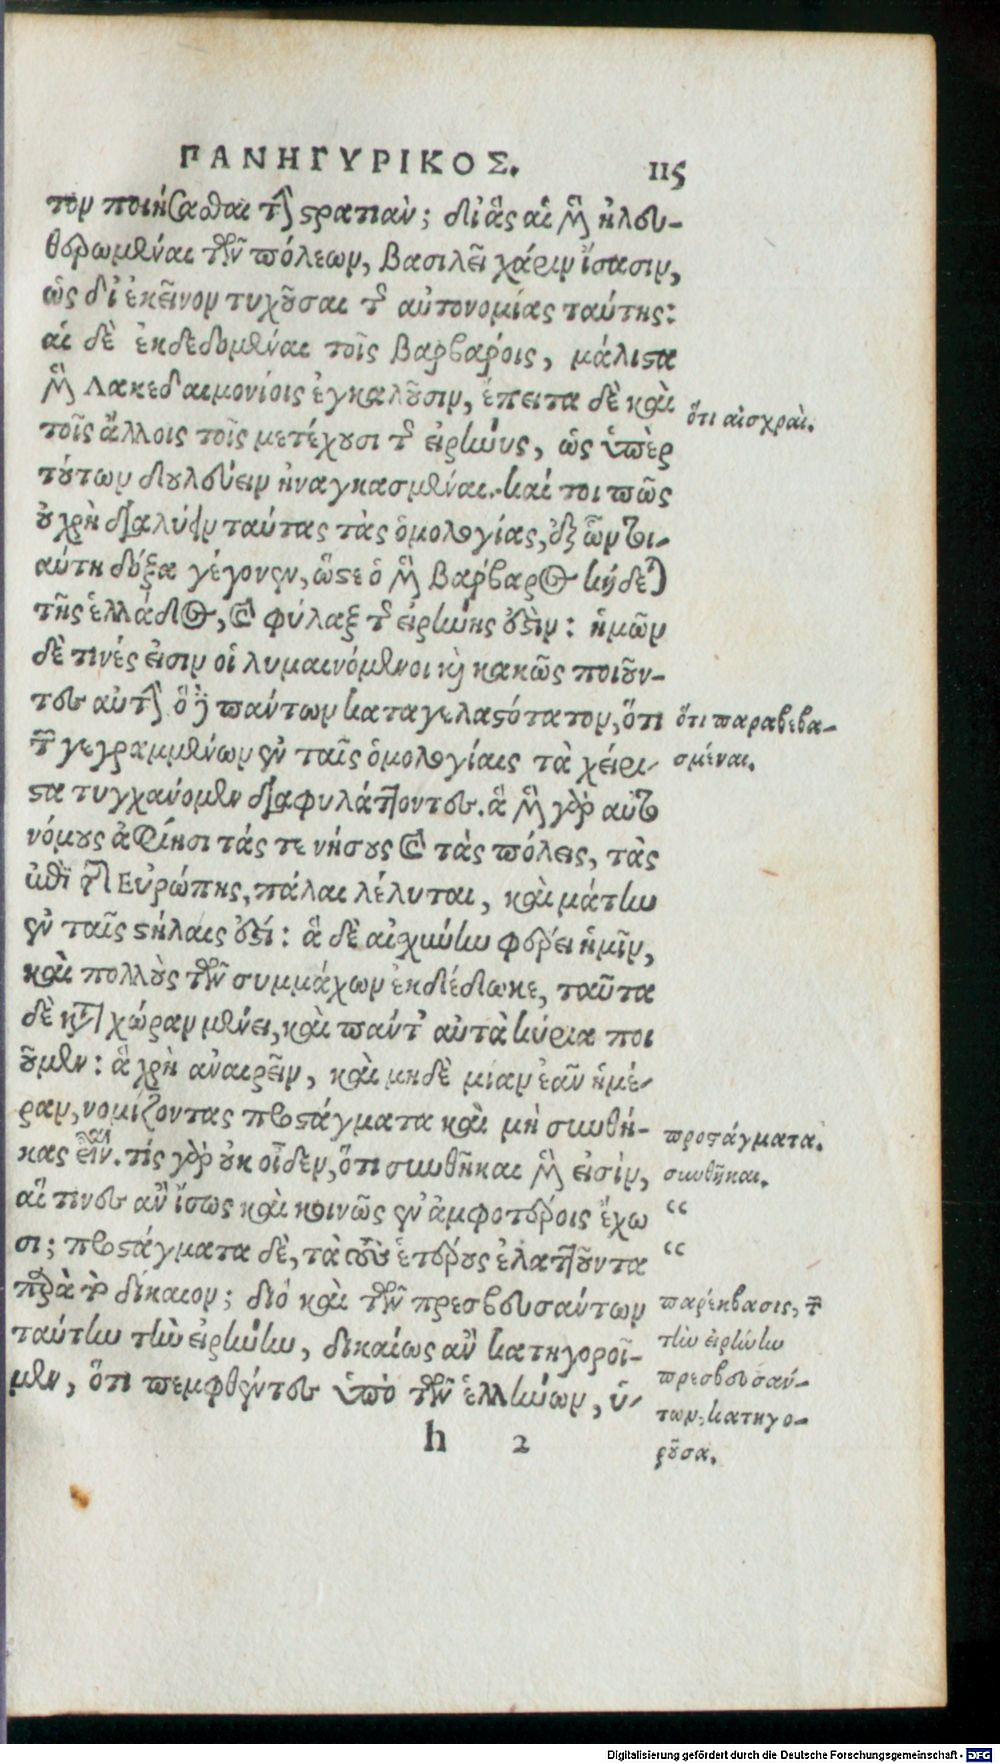 ΠΑΝΗΓΥΡΙΚΟΣ. 115
τον ποιήσασθαι τὴν στρατιάν; δι' ἃς αἱ μὲν ἠλευ-
θερωμέναι τῶν πόλεων, βασιλεῖ χάριν ἴσασιν,
ὡς δι' ἐκεῖνον τυχοῦσαι τῆς αὐτονομίας ταύτης:
αἱ δὲ ἐκδεδομέναι τοῖς βαρβάροις, μάλιστα
μὲν Λακεδαιμονίοις ἐγκαλοῦσιν, ἔπειτα δὲ καὶ
ὅτι αἰσχραὶ.
τοῖς ἄλλοις τοῖς μετέχουσι τῆς εἰρήνης, ὡς ὑπὲρ
τούτων δουλεύειν ἠναγκασμέναι. καί τοι πῶς
οὐ χρὴ διαλύειν ταύτας τὰς ὁμολογίας, ἐξ ὧν τοι-
αύτη δόξα γέγονεν, ὥστε ὁ μὲν βάρβαρος κήδεται
τῆς ἑλλάδος, καὶ φύλαξ τῆς εἰρήνης ἐστὶν: ἡμῶν
δὲ τινές εἰσιν οἱ λυμαινόμενοι καὶ κακῶς ποιοῦν-
τες αὐτήν. ὃ δὲ πάντων καταγελαστότατον, ὅτι
ὅτι παραβεβα-
τῶν γεγραμμένων ἐν ταῖς ὁμολογίαις τὰ χείρι-
σμέναι.
στα τυγχάνομεν διαφυλάττοντες. ἃ μὲν γὰρ αὐτο
νόμους ἀφίησι τάς τε νήσους καὶ τὰς πόλεις, τὰς
ἐπὶ τῆς Εὐρώπης, πάλαι λέλυται, καὶ μάτην
ἐν ταῖς στήλαις ἐστί: ἃ δὲ αἰχύνην φέρει ἡμῖν,
καὶ πολλοὺς τῶν συμμάχων ἐκδέδωκε, ταῦτα
δὲ κατὰ χώραν μένει, καὶ πάντ' αὐτὰ κύρια ποι
οῦμεν: ἃ χρὴ ἀναιρεῖν, καὶ μηδὲ μίαν ἐᾶν ἡμέ-
ραν, νομίζοντας προστάγματα καὶ μὴ συνθή-
προστάγματα.
κας εἶναι. τίς γὰρ οὐκ οἶδεν, ὅτι συνθῆκαι μὲν εἰσὶν,
συνθῆκαι.
αἵ τινες ἂν ἴσως καὶ κοινῶς ἐν ἀμφοτέροις ἔχω
“
σι; προστάγματα δὲ, τὰ τοὺς ἑτέρους ἐλαττοῦντα
“
παρὰ τὸ δίκαιον; διό καὶ τῶν πρεσβευσάντων
παρέκβασις, τῶν
ταύτην τὴν εἰρήνην, δικαίως ἂν κατηγοροῖ-
τὴν εἰρήνην
μεν, ὅτι πεμφθέντες ὑπὸ τῶν ἑλλήνων, ὑ-
πρεσβευσάν-
των, κατηγο-
ροῦσα.
h 2
Digitalisierung gefördert durch die Deutsche Forschungsgemeinschaft - DFG